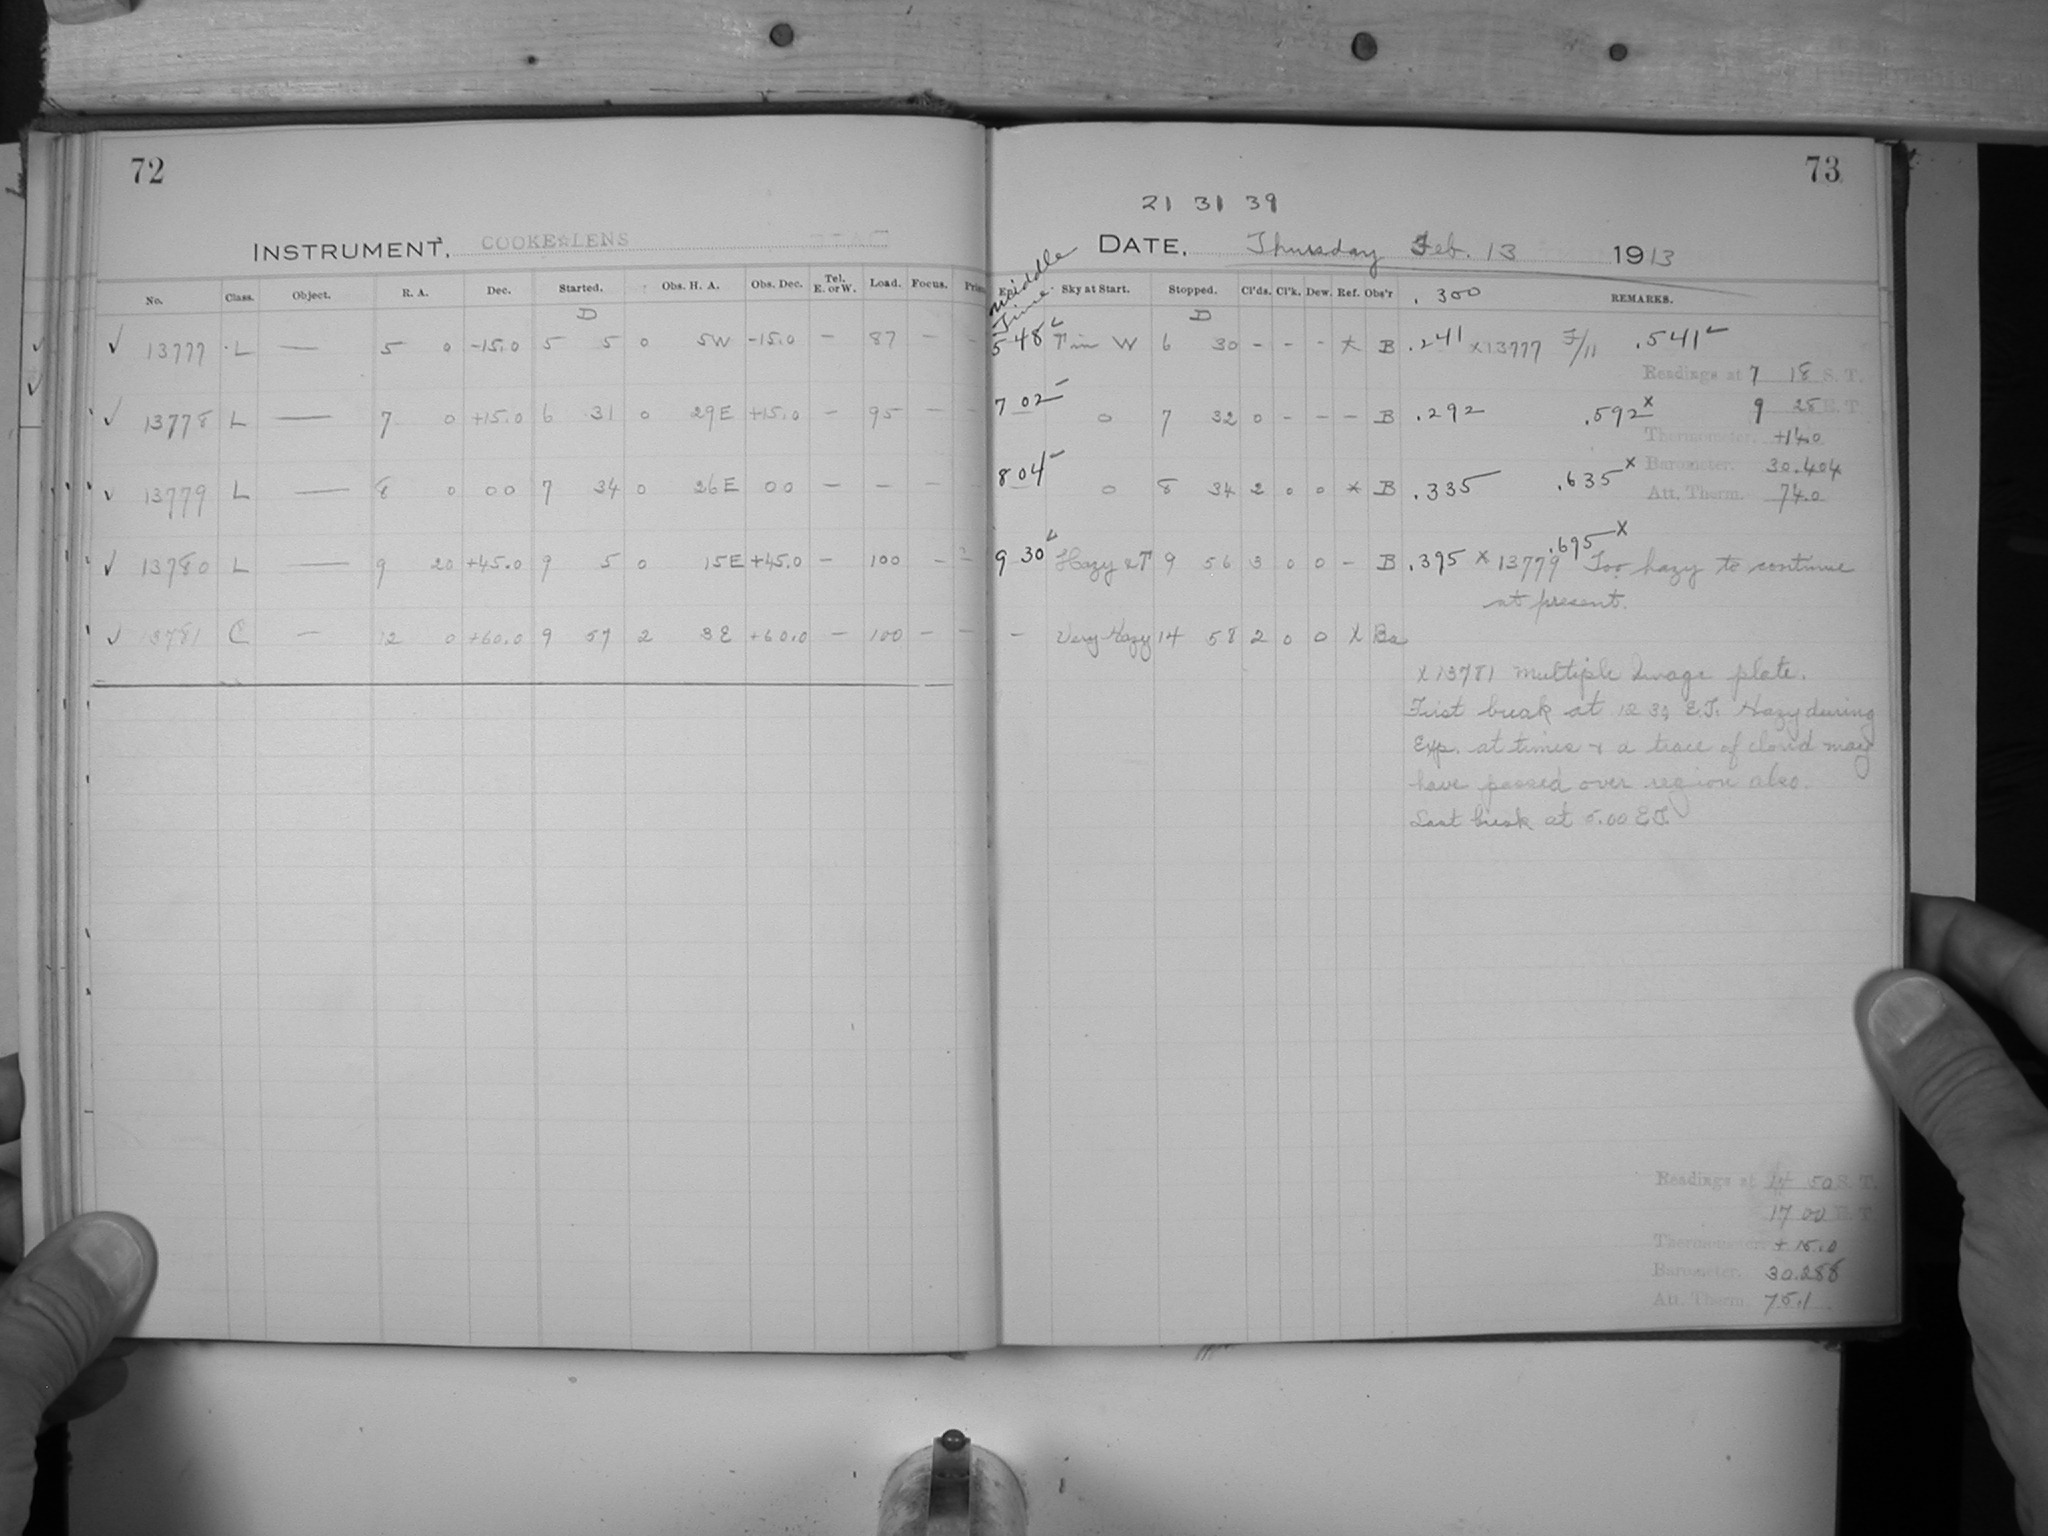 72
INSTRUMENT, COOKE☆LENS
No. Class. Object. R. A. Dec. Started. Obs. H. A. Obs. Dec. Tel. E. or W. Load. Focus.
D
✓ 13777 L — 5 0 -15.0 5 5 0 5W -15.0 — 87 — —
✓ 13778 L — 7 0 +15.0 6 31 0 29E +15.0 — 95 — —
✓ 13779 L — 8 0 00 7 34 0 26E 00 — — — —
✓ 13780 L — 9 20 +45.0 9 5 0 15E +45.0 — 100 —
✓ 13781 C — 12 0 +60.0 9 57 2 3E +60.0 — 100 — —
73
21 31 39
DATE, Thursday Feb. 13 1913
Middle Time
Sky at Start. Stopped. Cl'ds. Cl'k. Dew. Ref. Obs'r .300 REMARKS.
D
5 48 T in W 6 30 - - - x B .241 x13777 F/11 .541
Readings at 7 18 S. T.
7 02 0 7 32 0 - - - B .292 .592 x 9 28 E. T.
Thermometer. +14.0
Barometer. 30.404
8 04 0 8 34 2 0 0 * B .335 .635 x
Att. Therm. 74.0
9 30 Hazy & T 9 56 3 0 0 - B .395 x 13779 .695 x Too hazy to continue
at present.
— Very Hazy 14 58 2 0 0 X Ba
x 13781 multiple Image plate.
First break at 12 30 E.T. Hazy during
Exp. at times & a trace of cloud may
have passed over region also.
Last break at 5.00 E.T.
Readings at 14 50 S. T.
17 00 E. T.
Thermometer. + 15.0
Barometer. 30.288
Att. Therm. 75.1